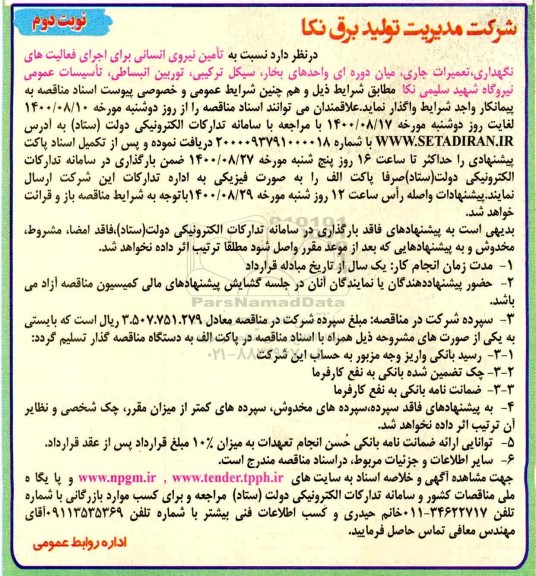 نوبت دوم
شرکت مدیریت تولید برق نکا
درنظر دارد نسبت به تأمین نیروی انسانی برای اجرای فعالیت های
نگهداری،تعمیرات جاری، میان دوره ای واحدهای بخار، سیکل ترکیبی، توربین انبساطی، تأسیسات عمومی
نیروگاه شهید سلیمی نکا مطابق شرایط ذیل و هم چنین شرایط عمومی و خصوصی پیوست اسناد مناقصه به
پیمانکار واجد شرایط واگذار نماید.علاقمندان می توانند اسناد مناقصه را از روز دوشنبه مورخه ۱۴۰۰/۰۸/۱۰
لغایت روز دوشنبه مورخه ۱۴۰۰/۰۸/۱۷ با مراجعه با سامانه تدارکات الکترونیکی دولت (ستاد) به آدرس
WWW.SETADIRAN.IR با شماره ۲۰۰۰۰۹۳۷۹۱۰۰۰۰۱۸ دریافت نموده و پس از تکمیل اسناد پاکت
پیشنهادی را حداکثر تا ساعت ۱۶ روز پنج شنبه مورخه ۱۴۰۰/۰۸/۲۷ ضمن بارگذاری در سامانه تدارکات
الکترونیکی دولت(ستاد)صرفا پاکت الف را به صورت فیزیکی به اداره تدارکات این شرکت ارسال
نمایند.پیشنهادات واصله رأس ساعت ۱۲ روز شنبه مورخه ۱۴۰۰/۰۸/۲۹باتوجه به شرایط مناقصه باز و قرائت
خواهد شد.
بدیهی است به پیشنهادهای فاقد بارگذاری در سامانه تدارکات الکترونیکی دولت(ستاد)،فاقد امضا، مشروط،
مخدوش و به پیشنهادهایی که بعد از موعد مقرر واصل شود مطلقا ترتیب اثر داده نخواهد شد.
۱- مدت زمان انجام کار: یک سال از تاریخ مبادله قرارداد
۲- حضور پیشنهاددهندگان یا نمایندگان آنان در جلسه گشایش پیشنهادهای مالی کمیسیون مناقصه آزاد می
باشد.
ParsNamadData
۳- سپرده شرکت در مناقصه: مبلغ سپرده شرکت در مناقصه معادل ۳.۵۰۷.۷۵۱.۲۷۹ ریال است که بایستی
به یکی از صورت های مشروحه ذیل همراه با اسناد مناقصه در پاکت الف به دستگاه مناقصه گذار تسلیم گردد:
۳-۱- رسید بانکی واریز وجه مزبور به حساب این شرکت
۳-۲- چک تضمین شده بانکی به نفع کارفرما
۳-۳- ضمانت نامه بانکی به نفع کارفرما
۴- به پیشنهادهای فاقد سپرده،سپرده های مخدوش، سپرده های کمتر از میزان مقرر، چک شخصی و نظایر
آن ترتیب اثر داده نخواهد شد.
۵- توانایی ارائه ضمانت نامه بانکی حُسن انجام تعهدات به میزان ۱۰٪ مبلغ قرارداد پس از عقد قرارداد.
۶- سایر اطلاعات و جزئیات مربوط، دراسناد مناقصه مندرج است.
جهت مشاهده آگهی و خلاصه اسناد به سایت های www.tender.tpph.ir , www.npgm.ir و پا یگا ه
ملی مناقصات کشور و سامانه تدارکات الکترونیکی دولت (ستاد) مراجعه و برای کسب موارد بازرگانی با شماره
تلفن ۳۴۶۲۲۷۱۷-۰۱۱خانم حیدری و کسب اطلاعات فنی بیشتر با شماره تلفن ۰۹۱۱۳۵۳۵۳۶۹آقای
مهندس معافی تماس حاصل فرمایید.
اداره روابط عمومی